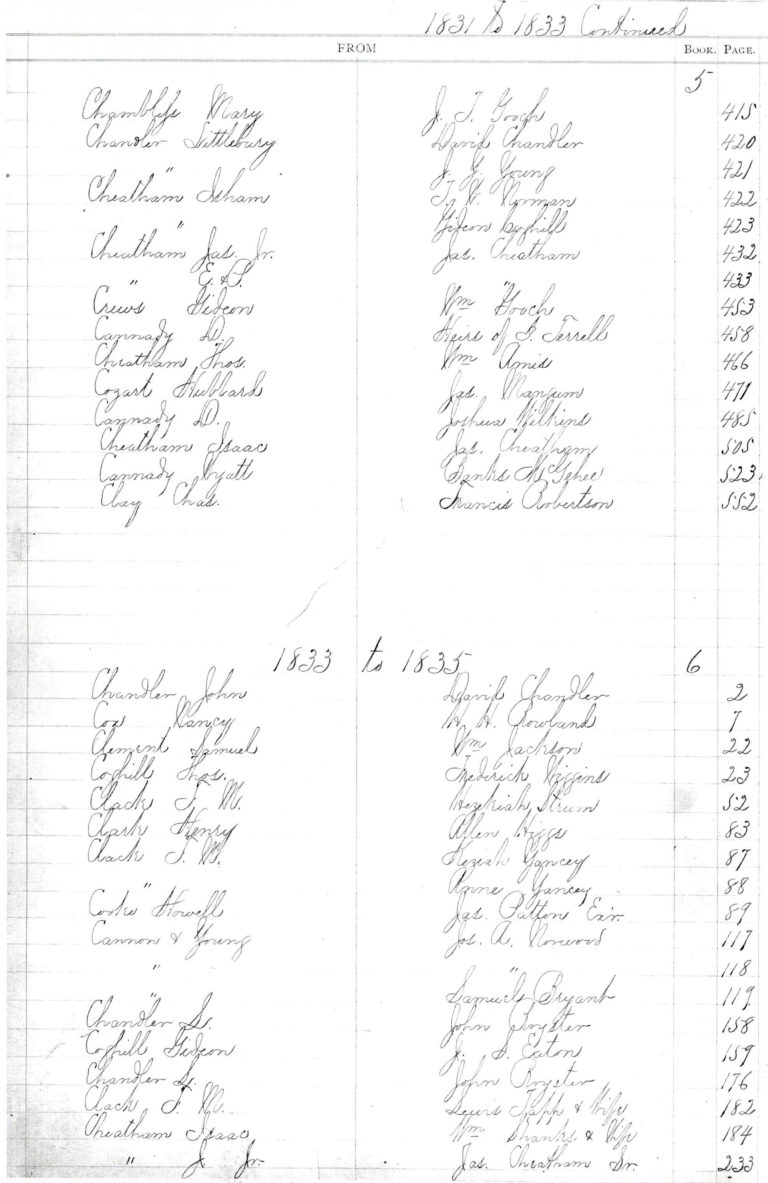 1831 to 1833 Continued
FROM BOOK. PAGE.
5
Chambless Mary J. T. Gooch 415
Chandler Littlebury David Chandler 420
" J. Y. Young 421
Cheatham Isham T. W. Norman 422
" Gideon Coghill 423
Cheatham Jas. Jr. Jas. Cheatham 432
" E. & L. " 433
Crews Gideon Wm Gooch 453
Cannady D. Heirs of J. Terrell 458
Cheatham Thos. Wm Amis 466
Cozart Hubbard Jas. Mangum 471
Cannady D. Joshua Wilkins 485
Cheatham Isaac Jas. Cheatham 505
Cannady Wyatt Banks McGehee 523
Clay Chas. Francis Robertson 552
1833 to 1835 6
Chandler John David Chandler 2
Cox Nancy H. H. Rowland 7
Clement Samuel Wm Jackson 22
Coghill Thos. Frederick Wiggins 23
Clack T. M. Hezekiah Strum 52
Clark Henry Allen Higgs 83
Clack T. M. Keziah Yancey 87
" Anne Yancey 88
Cooke Howell Jas. Patton Exr. 89
Cannon & Young Jos. A. Norwood 117
" " 118
" Samuel Bryant 119
Chandler L. John Royster 158
Coghill Gideon J. S. Eaton 159
Chandler L. John Royster 176
Clack T. M. Lewis Tapp & Wife 182
Cheatham Isaac Wm Shanks & Wife 184
" J. Jr. Jas. Cheatham Sr. 233